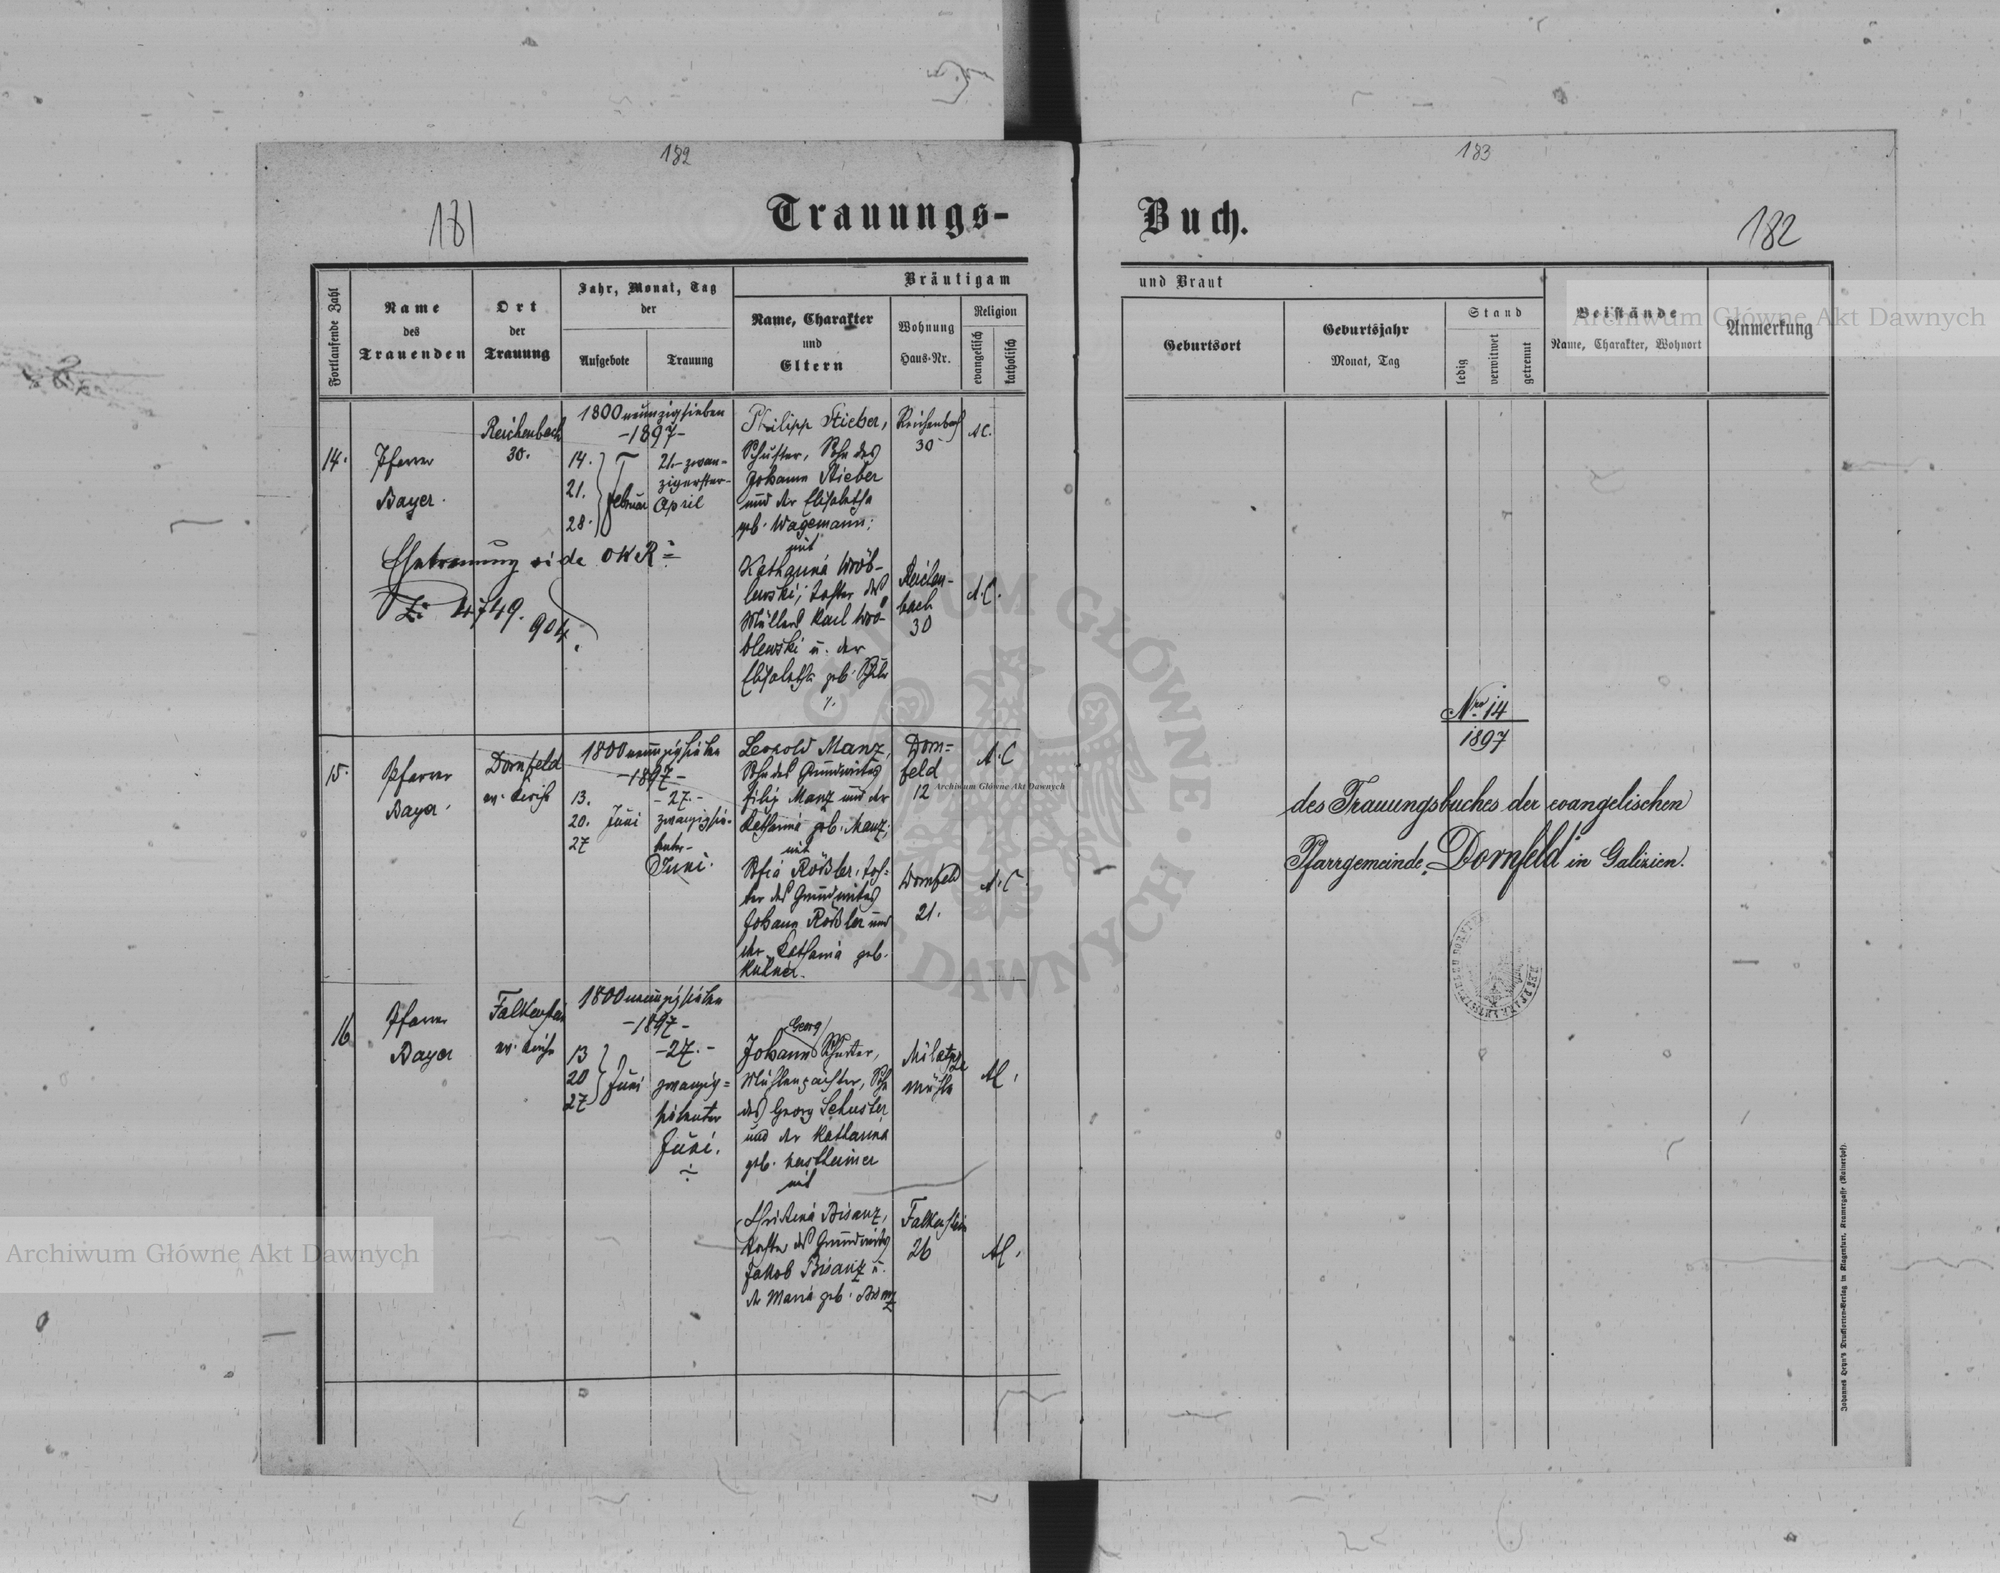 182
183
181
Trauungs-
Buch.
182
Fortlaufende Zahl
Name
des
Trauenden
Ort
der
Trauung
Jahr, Monat, Tag
der
Aufgebote
Trauung
Bräutigam
Name, Charakter
und
Eltern
Wohnung
Haus-Nr.
Religion
evangelisch
katholisch
und Braut
Geburtsort
Geburtsjahr
Monat, Tag
Stand
ledig
verwitwet
getrennt
Beistände
Name, Charakter, Wohnort
Anmerkung
14.
Pfarrer
Bayer.
Reichenbach
30.
1800neunzigsieben
-1897-
14.
21.
28.
Februar
21.-zwan-
zigerster-
April
Philipp Stieber,
Schuster, Sohn des
Johann Stieber
und der Elisabetha
geb. Wagemann;
mit
Katharina Wrób-
lewski; Tochter des
Müllers Karl Wró-
blewski u. der
Elisabetha geb.
Reichenbach
30
AC.
Reichen-
bach
30
A.C.
Ehetrennung vide OKR
Z: 4749.
904.
15.
Pfarrer
Bayer.
Dornfeld
ev. Kirche
1800neunzigsieben
-1897-
13.
20. Juni
27
-27.-
zwanzigsie-
benter-
Juni.
Leopold Manz,
Sohn des Grundwirtes
Filip Manz und der
Katharina geb. Manz;
mit
Sofia Rößler, Toch-
ter des Grundwirtes
Johann Rößler und
der Katharina geb.
Dorn=
feld
12
A.C
Dornfeld
21.
A.C.
16
Pfarrer
Bayer
Falkenstein
ev. Kirche
1800neunzigsieben
-1897-
13
20
27
Juni
-27.-
zwanzig=
siebenter
Juni.
Georg
Johann Schuster,
Mühlenpächter, Sohn
des Georg Schuster
und der Katharina
geb.
mit
Christina Bisanz,
Tochter des Grundwirtes
Jakob Bisanz u.
der Maria geb. Bisanz
Mühle
AC.
Falkenstein
26
AC.
Nro 14
1897
des Trauungsbuches der evangelischen
Pfarrgemeinde Dornfeld in Galizien.
Johannes Heyn's Drucksorten-Verlag in Klagenfurt, Kramergasse (Rainerhof).
Archiwum Główne Akt Dawnych
Archiwum Główne Akt Dawnych
Archiwum Główne Akt Dawnych
ARCHIWUM GŁÓWNE AKT DAWNYCH